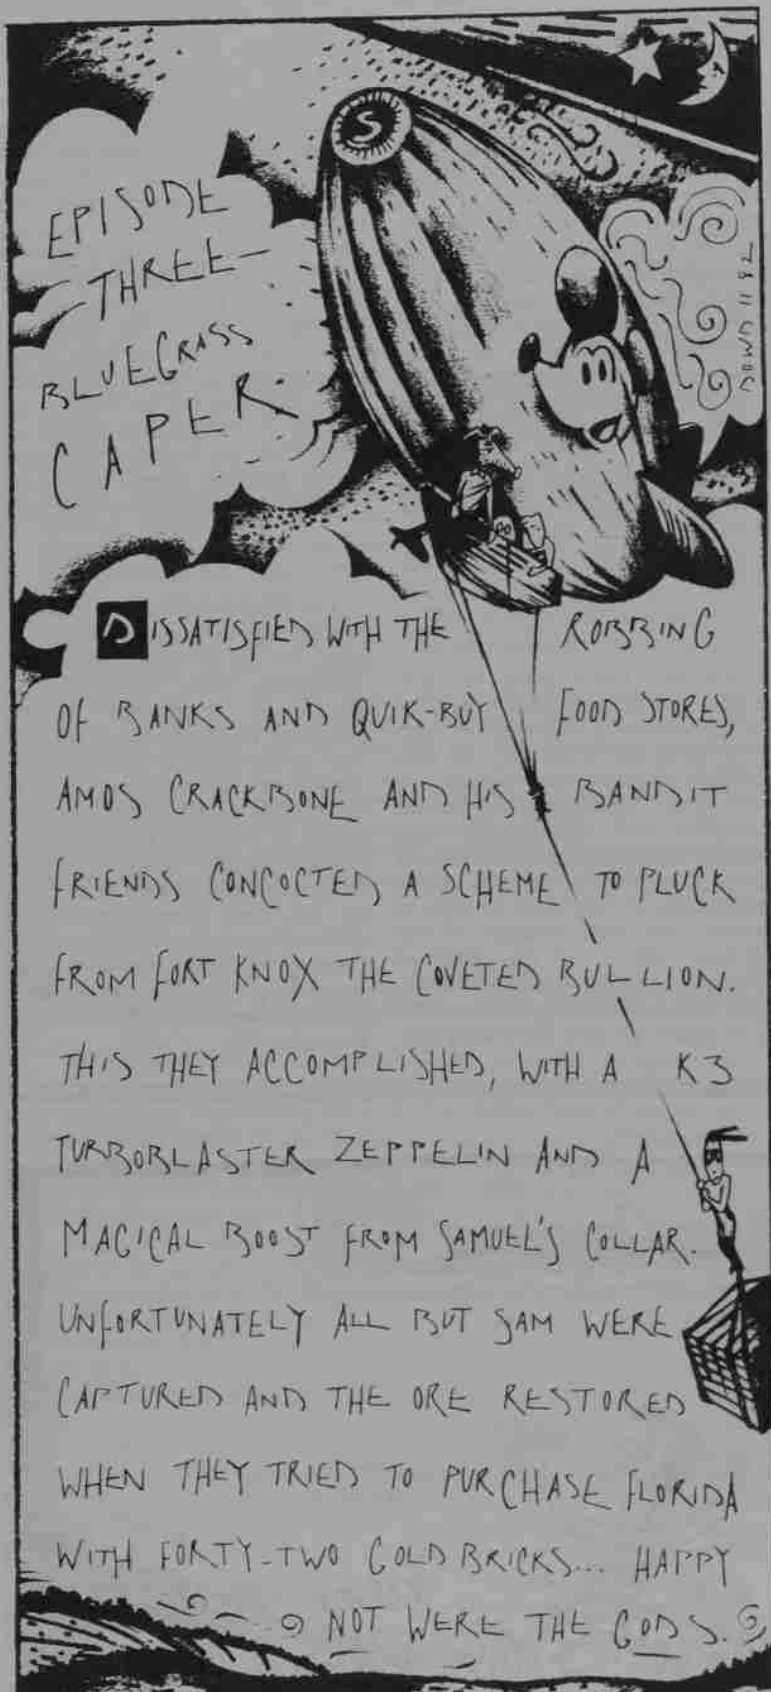 S
EPISODE
-THREE-
BLUEGRASS
CAPER.
DISSATISFIED WITH THE ROBBING
OF BANKS AND QUIK-BUY FOOD STORES,
AMOS CRACKBONE AND HIS BANDIT
FRIENDS CONCOCTED A SCHEME TO PLUCK
FROM FORT KNOX THE COVETED BULLION.
THIS THEY ACCOMPLISHED, WITH A K3
TURBOBLASTER ZEPPELIN AND A
MAGICAL BOOST FROM SAMUEL'S COLLAR.
UNFORTUNATELY ALL BUT SAM WERE
CAPTURED AND THE ORE RESTORED
WHEN THEY TRIED TO PURCHASE FLORIDA
WITH FORTY-TWO GOLD BRICKS... HAPPY
NOT WERE THE GODS.